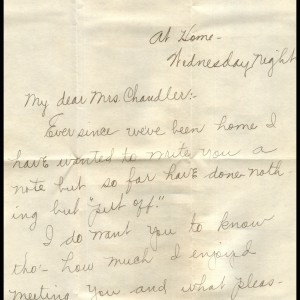 At Home-
Wednesday night
My dear Mrs. Chandler:-
Ever since we've been home I
have wanted to write you a
note but so far have done noth-
ing but "put off."
I do want you to know
tho:- how much I enjoyed
meeting you and what pleas-